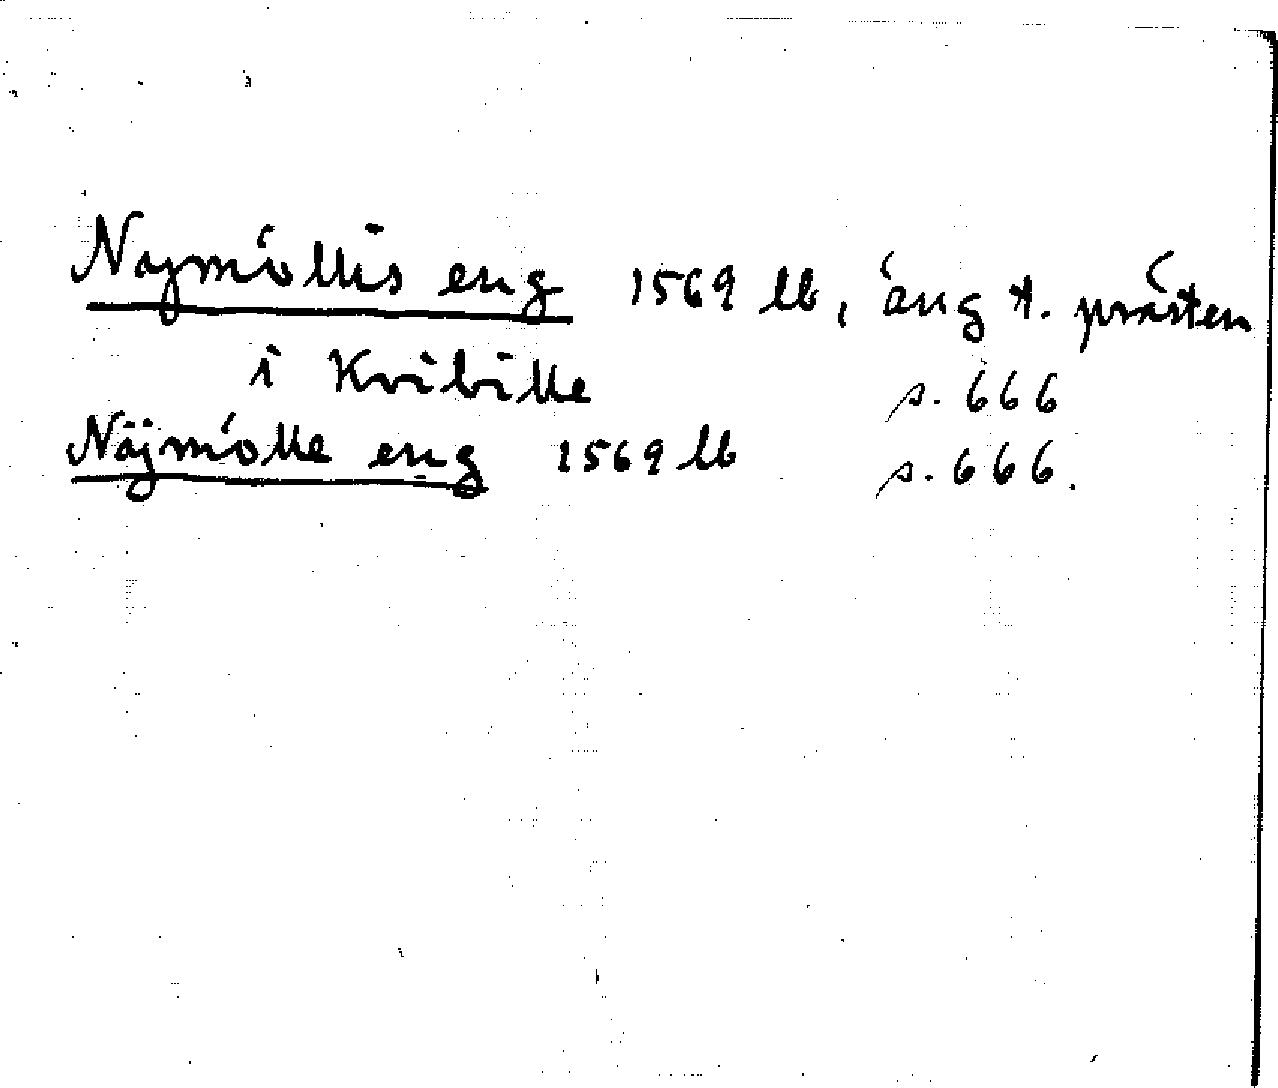 Najmöllis eng 1569 lb, äng t. prästen
i Kvibille s. 666
Näjmölle eng 1569 lb s. 666.